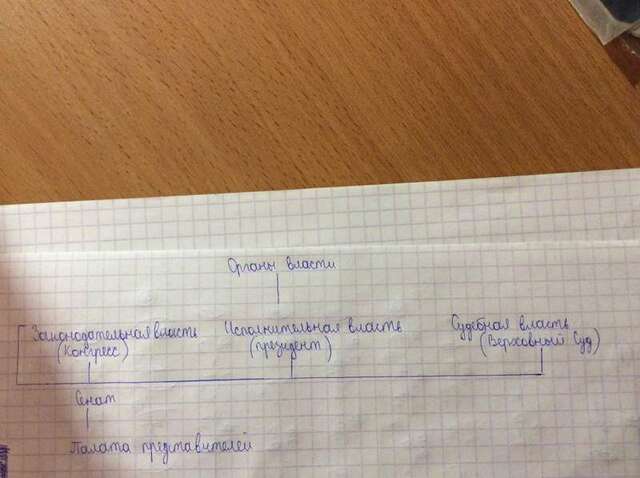 Органы власти
Законодательная власть
(Конгресс)
Исполнительная власть
(президент)
Судебная власть
(Верховный Суд)
Сенат
Палата представителей